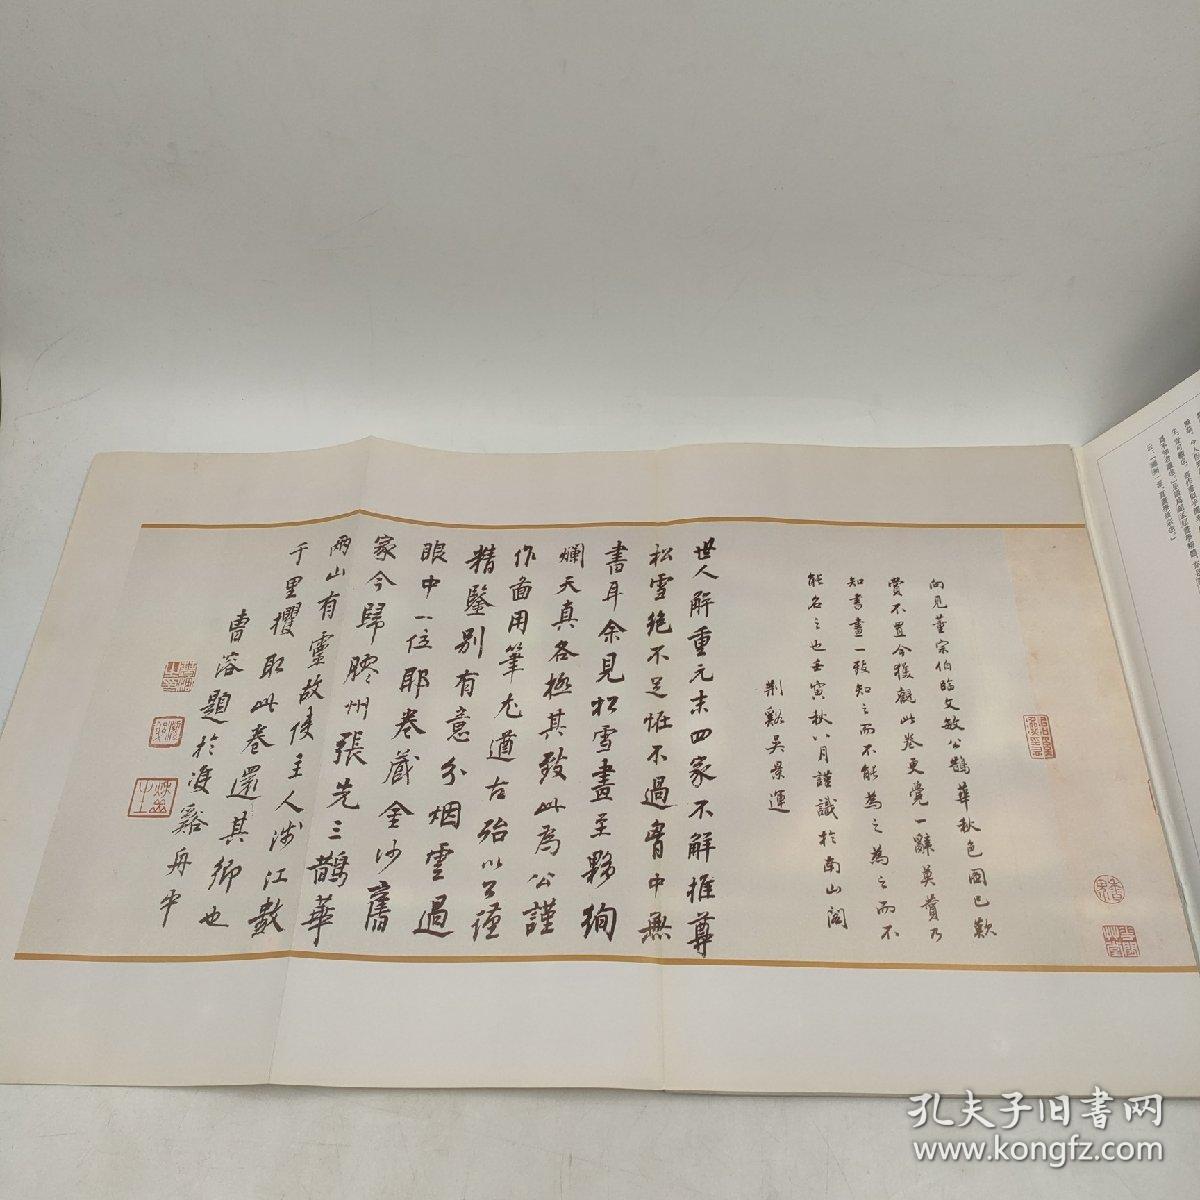 向見董宗伯臨文敏公鵲華秋色圖已歎
賞不置今獲觀此卷更覺一辭莫贊乃
知書畫一致知之而不能為之為之而不
能名之也壬寅秋八月謹識於南山閣
荆谿吴景運
世人解重元末四家不解推尊
松雪絶不足怪不過胷中無
書耳余見松雪畫至夥絢
爛天真各極其致此為公謹
作畫用筆尤遒古殆以公謹
精鑒別有意分烟雲過
眼中一位耶卷藏金沙舊
家今歸膠州張先三鵲華
兩山有靈故使主人涉江數
千里攫取此卷還其鄉也
曹溶題於雙谿舟中
孔夫子旧書网
www.kongfz.com